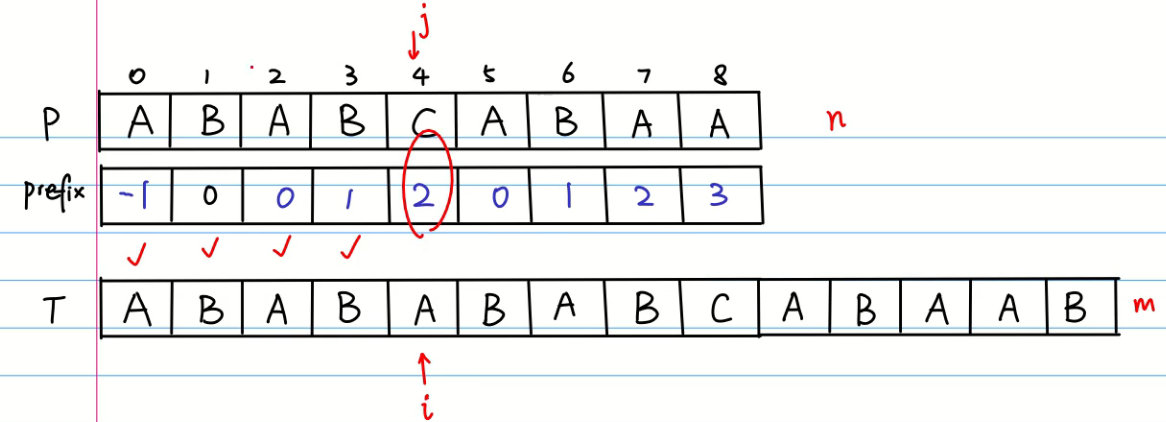 j
0 1 2 3 4 5 6 7 8
P A B A B C A B A A n
prefix -1 0 0 1 2 0 1 2 3
✓ ✓ ✓ ✓
T A B A B A B A B C A B A A B m
i